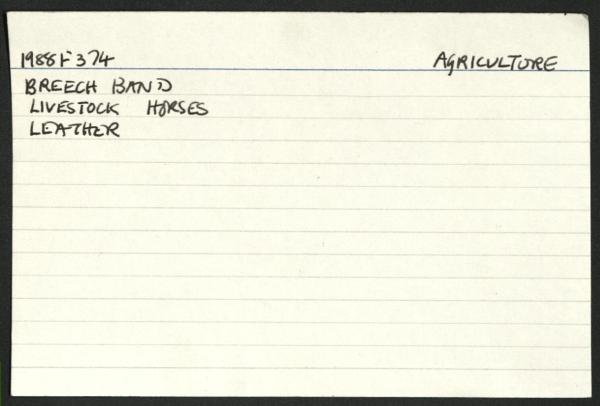 1988F374 AGRICULTURE
BREECH BAND
LIVESTOCK HORSES
LEATHER